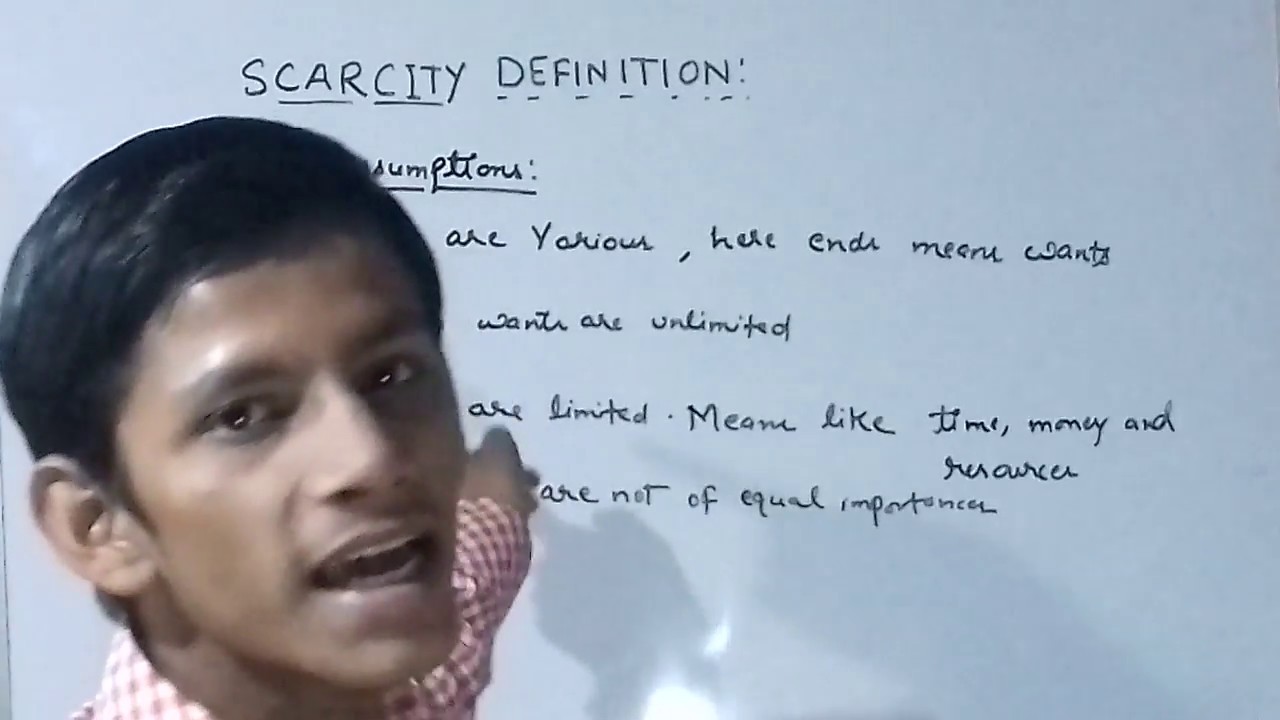 SCARCITY DEFINITION:
sumptions:
are Various, here ends means wants
wants are unlimited
are limited. Means like time, money and
resources
are not of equal importances